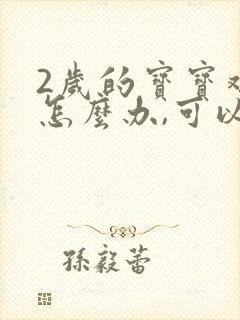 2歲的寶寶
怎麼办,可以
孫毅蕾